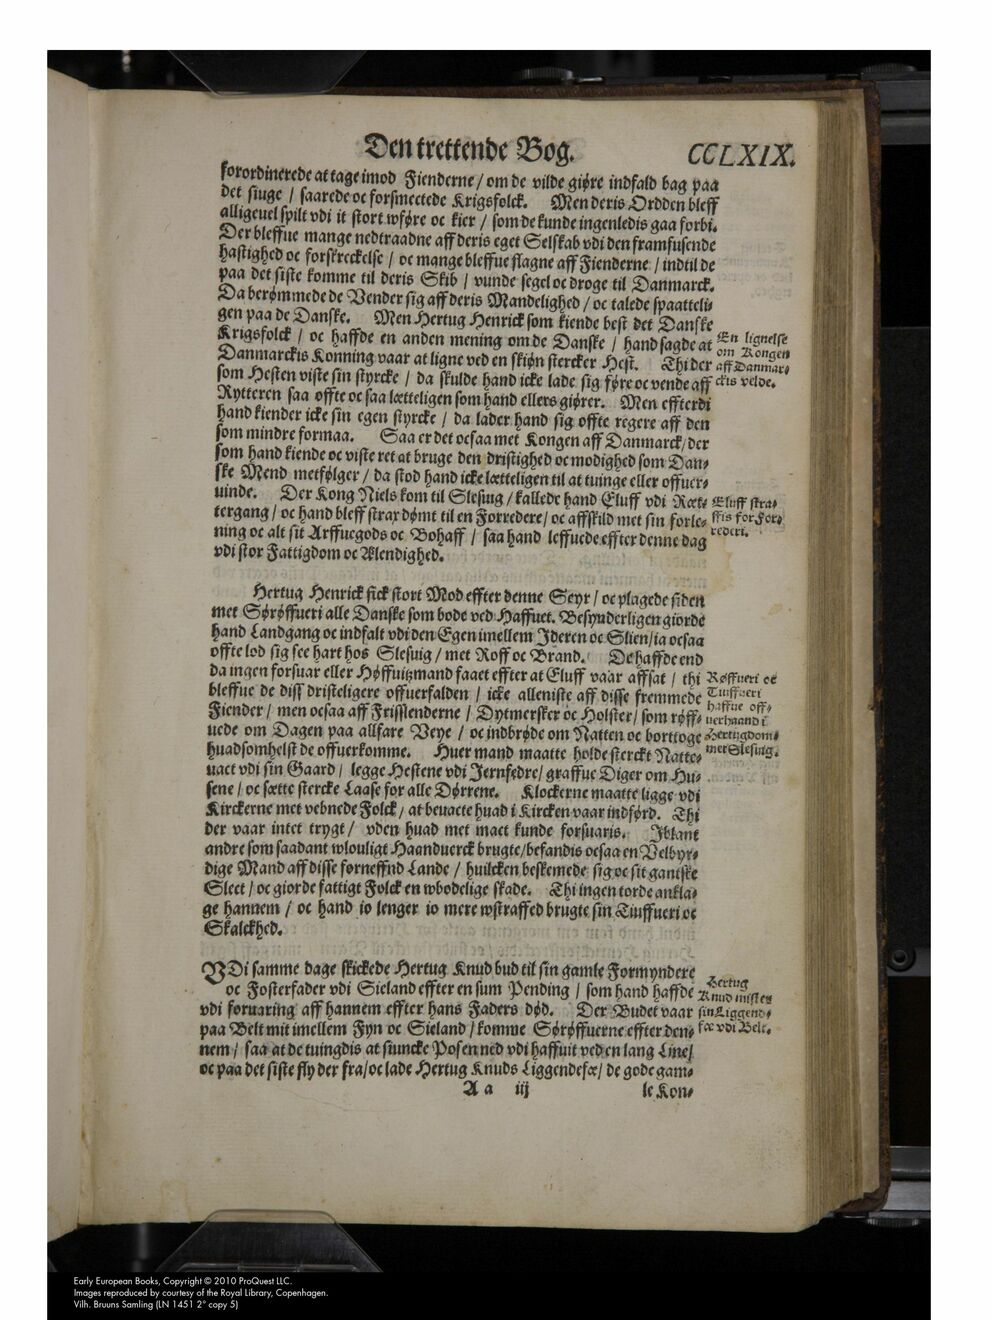 Den trettende Bog.
CCLXIX.
forordinerede at tage imod Fienderne / om de vilde giøre indfald bag paa
det siuge / saarede oc forsmectede Krigsfolck. Men deris Ordden bleff
alligeuel spilt vdi it stort wføre oc kier / som de kunde ingenledis gaa forbi.
Der bleffue mange nedtraadne aff deris eget Selskab vdi den framfusende
hastighed oc forskreckelse / oc mange bleffue slagne aff Fienderne / indtil de
paa det siste komme til deris Skib / vunde segel oc droge til Danmarck.
Da berømmede de Vender sig aff deris Mandelighed / oc talede spaatteli-
gen paa de Danske. Men Hertug Henrick som kiende best det Danske
Krigsfolck / oc haffde en anden mening om de Danske / hand sagde at
Danmarckis Konning vaar at ligne ved en skiøn stercker Hest. Thi der
som Hesten viste sin styrcke / da skulde hand icke lade sig føre oc vende aff
Rytteren saa offte oc saa lætteligen som hand ellers giører. Men effterdi
hand kiender icke sin egen styrcke / da lader hand sig offte regere aff den
som mindre formaa. Saa er det ocsaa met Kongen aff Danmarck / der
som hand kiende oc viste ret at bruge den dristighed oc modighed som Dan-
ske Mend metfølger / da stod hand icke lætteligen til at tuinge eller offuer-
uinde. Der Kong Niels kom til Slesuig / kallede hand Eluff vdi Ræt-
tergang / oc hand bleff strax dømt til en Forredere / oc affskild met sin forle-
ning oc alt sit Arffuegods oc Bohaff / saa hand leffuede effter denne dag
vdi stor Fattigdom oc Ælendighed.
En lignelse
om Kongen
aff Danmar-
ckis velde.
Eluff stra-
ffis for For-
rederi.
Hertug Henrick fick stort Mod effter denne Seyr / oc plagede siden
met Sørøffueri alle Danske som bode ved Haffuet. Besynderligen giorde
hand Landgang oc indfalt vdi den Egen imellem Jderen oc Slien / ia ocsaa
offte lod sig see hart hos Slesuig / met Roff oc Brand. De haffde end
da ingen forsuar eller Høffuitzmand faaet effter at Eluff vaar affsat / thi
bleffue de diss dristeligere offuerfalden / icke alleniste aff disse fremmede
Fiender / men ocsaa aff Frisslenderne / Dytmersker oc Holster / som røff-
uede om Dagen paa allfare Veye / oc indbrøde om Natten oc borttoge
huadsomhelst de offuerkomme. Huer mand maatte holde sterckt Natte-
uact vdi sin Gaard / legge Hestene vdi Jernfedre / graffue Diger om Hu-
sene / oc sætte stercke Laase for alle Dørrene. Klockerne maatte ligge vdi
Kirckerne met vebnede Folck / at beuacte huad i Kircken vaar indførd. Thi
der vaar intet trygt / vden huad met mact kunde forsuaris. Jblant
andre som saadant wlouligt Haanduerck brugte / befandis ocsaa en Velbyr-
dige Mand aff disse forneffnd Lande / huilcken beskemede sig oc sit gantske
Slect / oc giorde fattigt Folck en wbodelige skade. Thi ingen torde ankla-
ge hannem / oc hand io lenger io mere wstraffed brugte sin Tiuffueri oc
Skalckhed.
Røffueri oc
Tiuffueri
haffue off-
uerhaand i
Hertugdom-
mer Slesuig.
VDi samme dage skickede Hertug Knud bud til sin gamle Formyndere
oc Fosterfader vdi Sieland effter en sum Pending / som hand haffde
vdi foruaring aff hannem effter hans Faders død. Der Budet vaar
paa Belt mit imellem Fyn oc Sieland / komme Sørøffuerne effter den-
nem / saa at de tuingdis at siuncke Posen ned vdi haffuit ved en lang Line /
oc paa det siste fly der fra / oc lade Hertug Knuds Liggendefæ / de gode gam-
Hertug
Knud mister
sin Liggend-
fæ vdi Belt.
A a iij
le Kon-
Early European Books, Copyright © 2010 ProQuest LLC.
Images reproduced by courtesy of the Royal Library, Copenhagen.
Vilh. Bruuns Samling (LN 1451 2° copy 5)